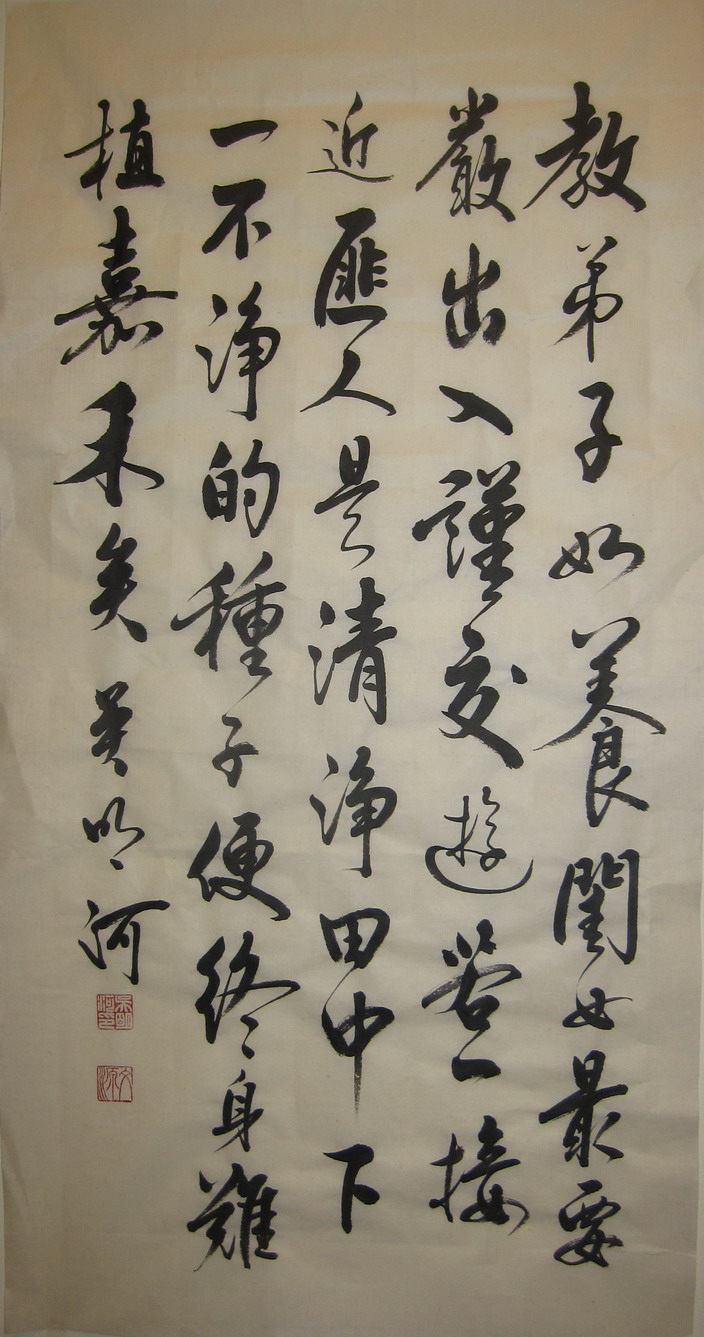 教弟子如養閨女最要
嚴出入謹交遊若一接
近匪人是清淨田中下
一不淨的種子便終身難
植嘉禾矣 吳明河